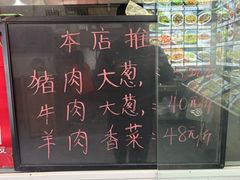 本店推
猪肉大葱,
牛肉大葱, 40元/斤
羊肉香菜:48元/斤